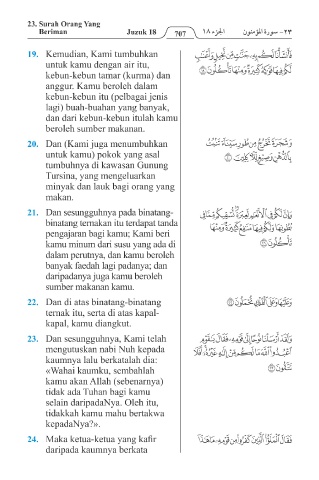 23. Surah Orang Yang
Beriman
Juzuk 18
707
٢٣- سورة المؤمنون الجزء ١٨
19. Kemudian, Kami tumbuhkan
untuk kamu dengan air itu,
kebun-kebun tamar (kurma) dan
anggur. Kamu beroleh dalam
kebun-kebun itu (pelbagai jenis
lagi) buah-buahan yang banyak,
dan dari kebun-kebun itulah kamu
beroleh sumber makanan.
فَأَنشَأْنَا لَكُم بِهِ جَنَّاتٍ مِّن نَّخِيلٍ وَأَعْنَابٍ
لَّكُمْ فِيهَا فَوَاكِهُ كَثِيرَةٌ وَمِنْهَا تَأْكُلُونَ ١٩
20. Dan (Kami juga menumbuhkan
untuk kamu) pokok yang asal
tumbuhnya di kawasan Gunung
Tursina, yang mengeluarkan
minyak dan lauk bagi orang yang
makan.
وَشَجَرَةً تَخْرُجُ مِن طُورِ سَيْنَاءَ تَنبُتُ
بِالدُّهْنِ وَصِبْغٍ لِّلْآكِلِينَ ٢٠
21. Dan sesungguhnya pada binatang-
binatang ternakan itu terdapat tanda
pengajaran bagi kamu; Kami beri
kamu minum dari susu yang ada di
dalam perutnya, dan kamu beroleh
banyak faedah lagi padanya; dan
daripadanya juga kamu beroleh
sumber makanan kamu.
وَإِنَّ لَكُمْ فِي الْأَنْعَامِ لَعِبْرَةً نُّسْقِيكُم مِّمَّا فِي
بُطُونِهَا وَلَكُمْ فِيهَا مَنَافِعُ كَثِيرَةٌ وَمِنْهَا
تَأْكُلُونَ ٢١
22. Dan di atas binatang-binatang
ternak itu, serta di atas kapal-
kapal, kamu diangkut.
وَعَلَيْهَا وَعَلَى الْفُلْكِ تُحْمَلُونَ ٢٢
23. Dan sesungguhnya, Kami telah
mengutuskan nabi Nuh kepada
kaumnya lalu berkatalah dia:
«Wahai kaumku, sembahlah
kamu akan Allah (sebenarnya)
tidak ada Tuhan bagi kamu
selain daripadaNya. Oleh itu,
tidakkah kamu mahu bertakwa
kepadaNya?».
وَلَقَدْ أَرْسَلْنَا نُوحًا إِلَىٰ قَوْمِهِ فَقَالَ يَا قَوْمِ
اعْبُدُوا اللَّهَ مَا لَكُم مِّنْ إِلَٰهٍ غَيْرُهُ أَفَلَا
تَتَّقُونَ ٢٣
24. Maka ketua-ketua yang kafir
daripada kaumnya berkata
فَقَالَ الْمَلَأُ الَّذِينَ كَفَرُوا مِن قَوْمِهِ مَا هَٰذَا